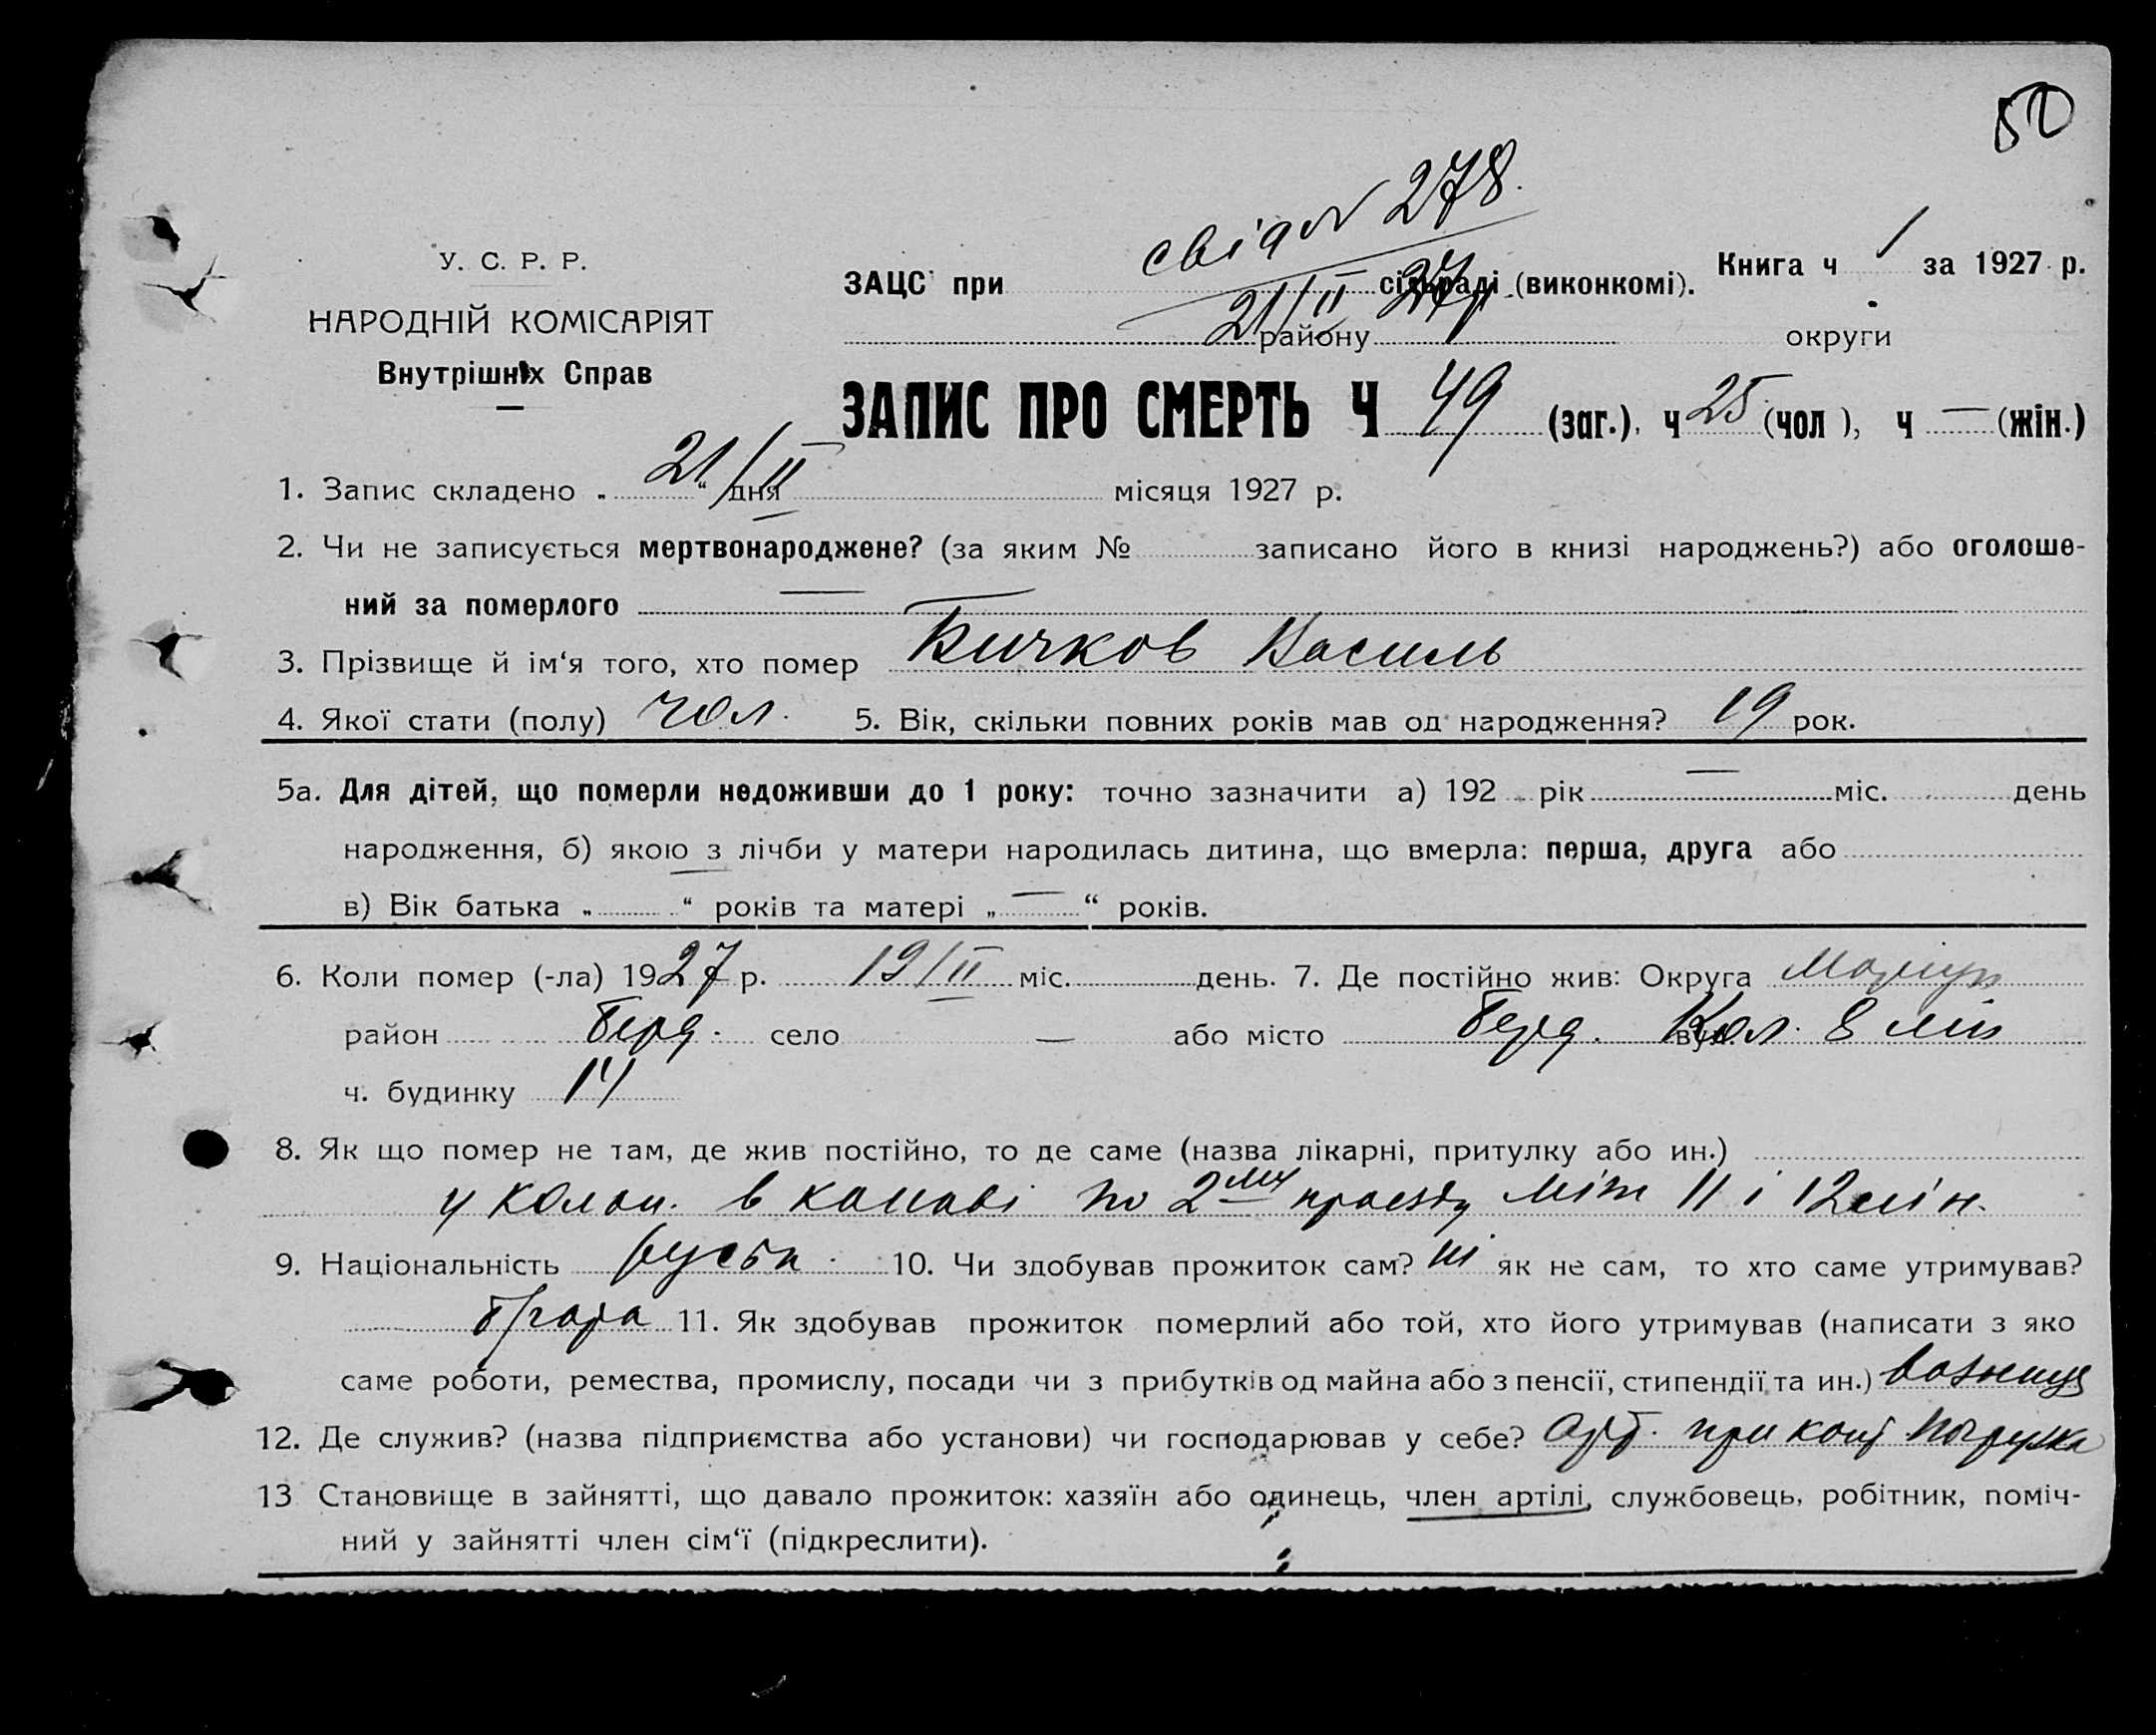 50
свід N 278.
У. С. Р. Р.
НАРОДНІЙ КОМІСАРІЯТ
Внутрішніх Справ
ЗАЦС при сільраді (виконкомі). Книга ч 1 за 1927 р.
21/II 27 р. району округи
ЗАПИС ПРО СМЕРТЬ Ч 49 (заг.), ч 25 (чол), ч — (жін.)
1. Запис складено „ 21/II “ дня місяця 1927 р.
2. Чи не записується мертвонароджене? (за яким № записано його в книзі народжень?) або оголоше-
ний за померлого —
3. Прізвище й ім‘я того, хто помер Бичков Василь
4. Якої стати (полу) чол. 5. Вік, скільки повних років мав од народження? 19 рок.
5а. Для дітей, що померли недоживши до 1 року: точно зазначити а) 192 рік — міс. день
народження, б) якою з лічби у матери народилась дитина, що вмерла: перша, друга або
в) Вік батька „ “ років та матері „ — “ років.
6. Коли помер (-ла) 1927 р. 19/II міс. день. 7. Де постійно жив: Округа Маріуп
район Берд. село — або місто Берд. вул. Кол. 8 лін
ч. будинку 14
8. Як що помер не там, де жив постійно, то де саме (назва лікарні, притулку або ин.)
у колон. в канаві по 2му проезду між 11 і 12 лін.
9. Національність руськ. 10. Чи здобував прожиток сам? ні як не сам, то хто саме утримував?
11. Як здобував прожиток померлий або той, хто його утримував (написати з яко
саме роботи, ремества, промислу, посади чи з прибутків од майна або з пенсії, стипендії та ин.) возниця
12. Де служив? (назва підприємства або установи) чи господарював у себе? Арт. при
13 Становище в зайнятті, що давало прожиток: хазяїн або одинець, член артілі, службовець, робітник, поміч-
ний у зайнятті член сім‘ї (підкреслити).